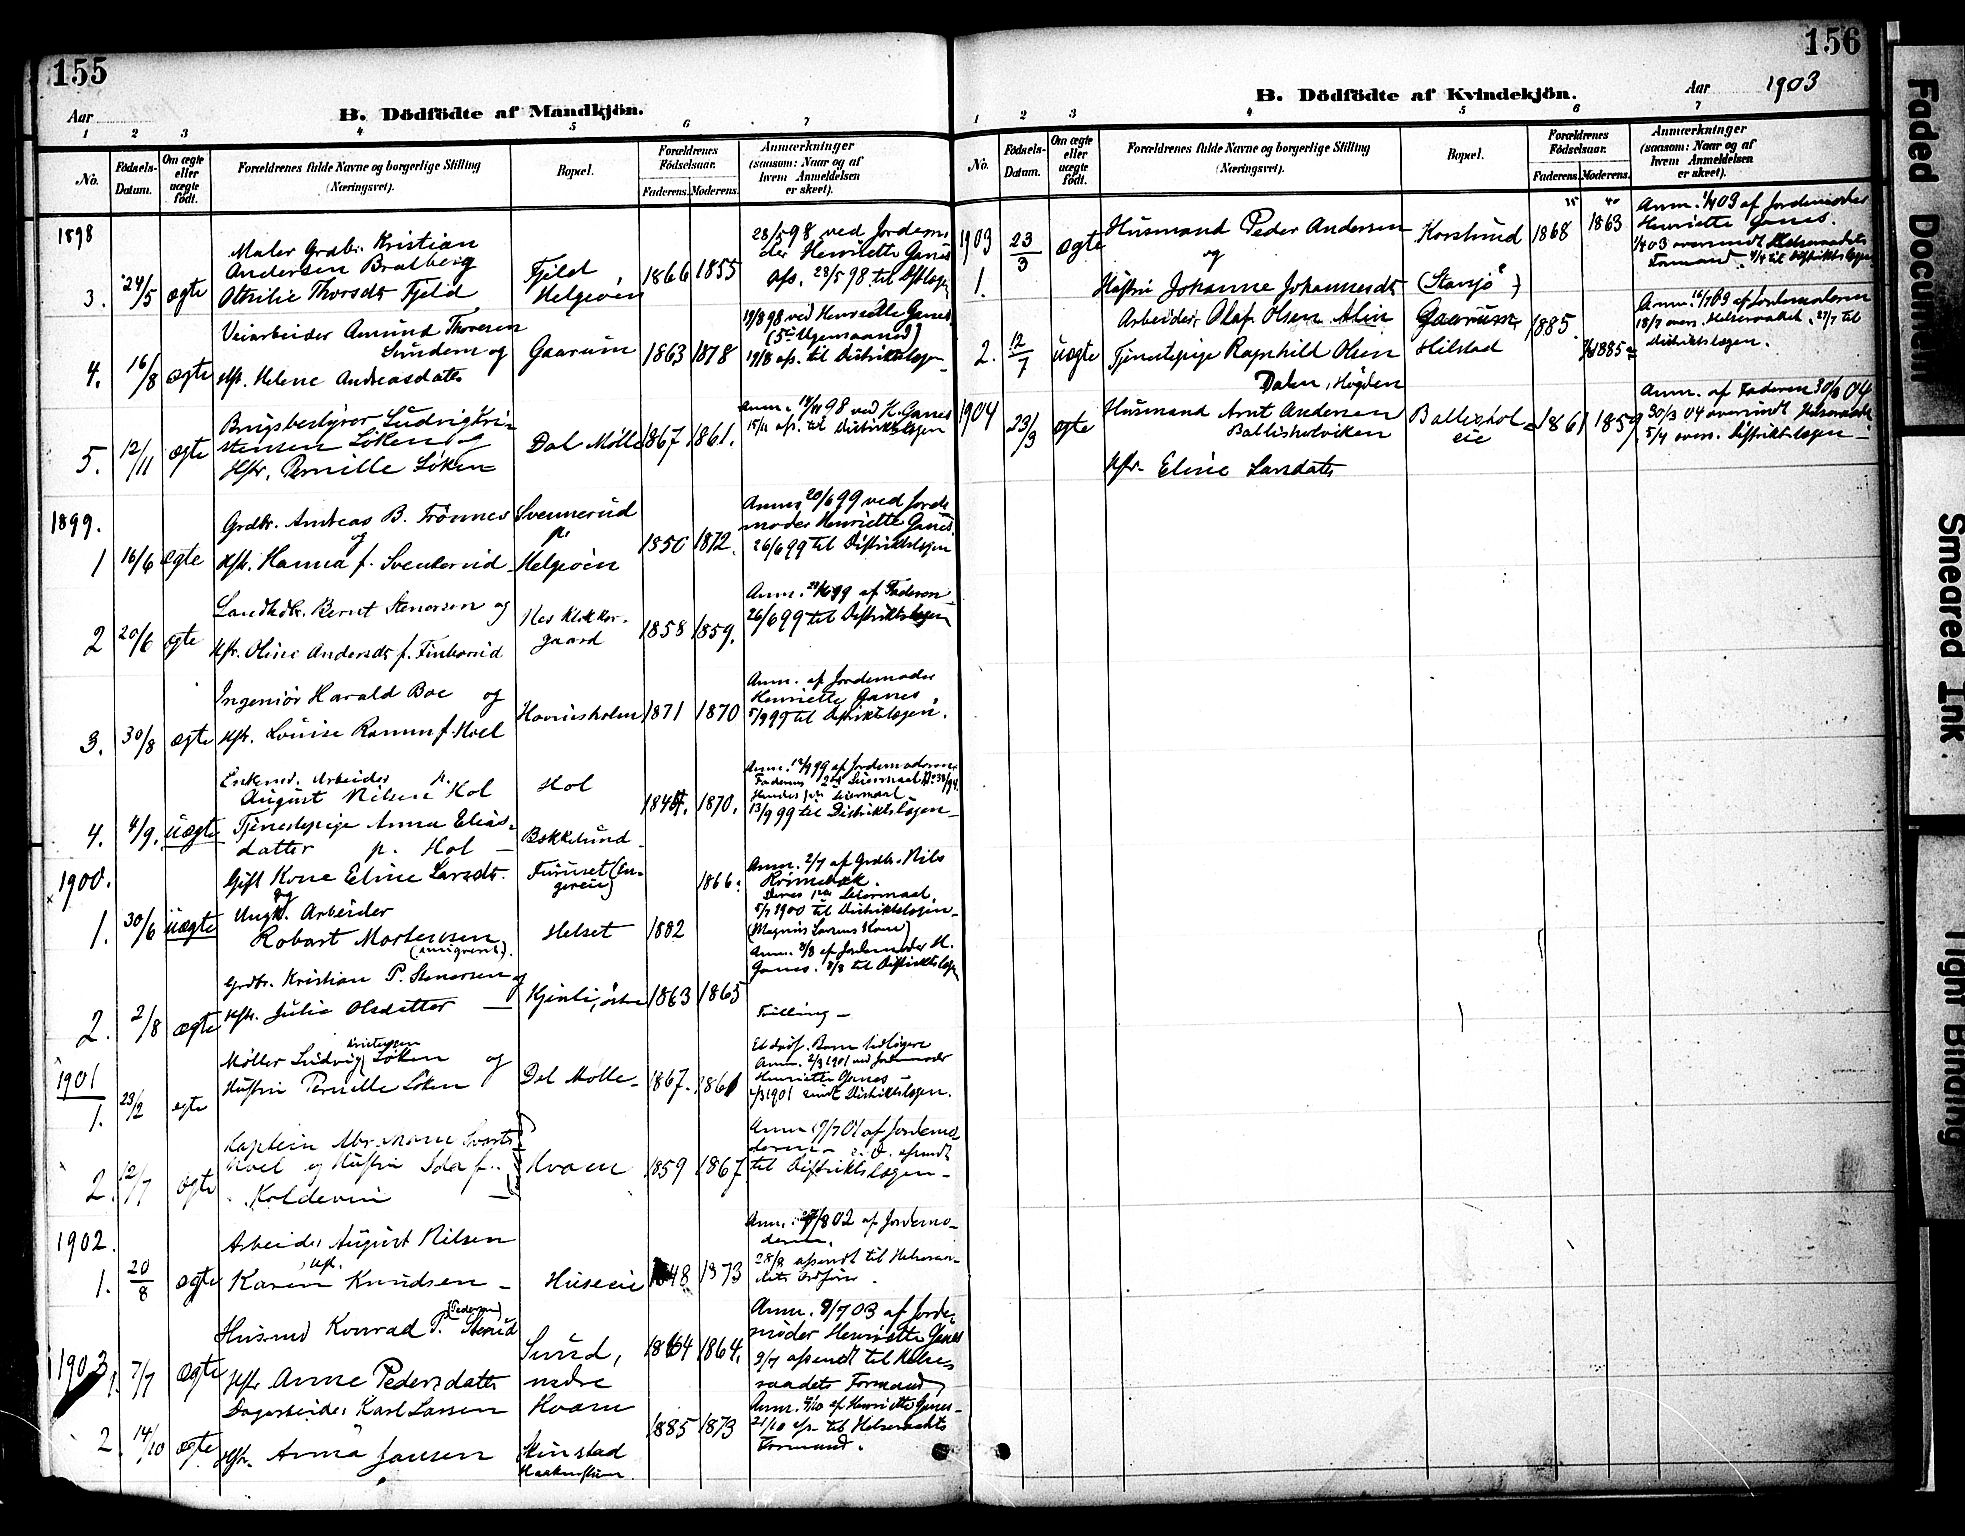 155
Aar
B. Dödfödte af Mandkjön.
1 2 3 4 5 6 7
No.
Födsels-Datum.
Om ægte eller uægte födt.
Forældrenes fulde Navne og borgerlige Stilling (Næringsvei).
Bopæl.
Forældrenes Födselsaar.
Faderens. Moderens.
Anmærkninger (saasom: Naar og af hvem Anmeldelsen er skeet).
1898
3. 24/5 ægte
Maler Grdbr. Kristian
Andersen Bratberg
Othilie Thorsdt Fjeld
Fjeld
Helgeöen
1866 1855
28/5 98 ved Jordemo-
der Henriette Ganes
afs. 28/5 98 til Dstlægen
4. 16/8 ægte
Veiarbeider Amund Thoresen
Sundem og
Hst. Helene Andreasdatter
Gaarum
1863 1878
19/8 98 ved Henriette Ganes
(5te Ugemaaned)
19/8 afs. til Distriktslægen
5. 12/11 ægte
Brugsbestyrer Ludvig Kri-
stensen Löken og
Hstr. Pernille Löken
Dal Mölle
1867. 1861.
Anm. 14/11 98 ved H. Ganes
15/11 afs. til Distriktslægen
1899.
1 16/6 ægte
Grdbr. Andreas B. Frönnes
og
Hst. Hanna f. Svennerud
Svennerud
p.
Helgeöen
1850 1872.
Anm. 20/6 99 ved Jorde-
moder Henriette Ganes
26/6 99 til Distriktslægen
2 20/6 ægte
Landhdlr. Bernt Stenersen og
Hst. Oline Andersdt f.
Nes Klokker-
gaard
1858 1859.
Anm. 23/6 99 af Faderen
26/6 99 til Distriktslægen
3. 30/8 ægte
Ingeniör Harald Boe og
Hst. Lovise Ramm f. Hoel
Hovinsholm
1871 1870
Anm. af Jordemoder
Henriette Ganes
5/9 99 til Distriktslægen.
4. 4/9. uægte
Enkemd. Arbeider p.
August Nilsen Hol
Tjenestepige Anna Elias-
datter p. Hol
Hol
Bekkelund
1870.
Anm. 12/9 99 af Jordemoderen
13/9 99 til Distriktslægen
1900.
1. 30/6 uægte
Gift Kone Eline Larsdt.
og
Ungk. Arbeider
Robart Mortensen
(emigreret).
Furuset (En-
gereie)
Helset
1882 1866.
Anm. 2/7 af Grdbr. Nils
Deres 1ste Leiermaal.
5/7 1900 til Distriktslægen
(Magnus Larsens Kone)
2. 2/8 ægte
Grdbr. Kristian P. Stenersen og
Hst. Julie Olsdatter
Kjinli, östre
1863 1865
Anm. 3/8 af Jordemoder H.
Ganes. 3/8 til Distriktslægen
Trilling
1901
1. 23/2 ægte
Möller Ludvig Kristensen Löken og
Hustru Pernille Löken
Dal Mölle
1867. 1861
Et dödf. Barn tidligere
Anm. 2/3 1901 ved Jordemoder
Henriette Ganes
4/3 1901 sendt Distriktslægen.
2. 12/7 ægte
Kaptein Abraham
Hoel og Hustru Ida f.
Koldevin
Hvam
1859 1867
Anm. 17/7 01 af Jordemo-
deren s. D. afsendt
til Distriktslægen
1902.
1. 20/8 ægte
Arbeider August Nilsen
Hst.
Karen Knudsen
Huseeie
1848 1873
Anm. 27/8 02 af Jordemo-
deren.
28/8 afsendt til Helseraa-
dets Ordförer.
1903
1. 7/7 ægte
Husmd Konrad P. (Pedersen) Sterud
Hst Anne Pedersdatter
Sund,
nedre
Hvam
1864 1864.
Anm. 8/7 03 af Jorde-
moder Henriette Ganes
9/7 afsendt til Helse-
raadets Formand
2 14/10 ægte
Dagarbeider Karl Larsen
Hst. Anna Jansen
Skinstad
1885 1873
Anm. af Henriette Ganes
21/10 afs. til Helseraadets
Formand.
156
B. Dödfödte af Kvindekjön.
Aar 1903
1 2 3 4 5 6 7
No.
Födsels-Datum.
Om ægte eller uægte födt.
Forældrenes fulde Navne og borgerlige Stilling (Næringsvei).
Bopæl.
Forældrenes Födselsaar.
Faderens. Moderens.
Anmærkninger (saasom: Naar og af hvem Anmeldelsen er skeet).
1903
1. 23/3 ægte
Husmand Peder Andersen
og
Hustru Johanne Johannesdt
Korslund
(Stavsjö)
35 40
1868 1863
Anm. 1/4 03 af Jordemoder
Henriette Ganes.
1/4 03 oversendt Helseraadets
Formand. 4/4 til Distriktslægen
2. 12/7 uægte
Arbeider Olaf Olsen Alin
Tjenestepige Ragnhild Olsen
Dalen, Högden
Gaarum
Hilstad
1885. 1885
Anm. 16/7 03 af Jordemoderen
18/7 overs. Helseraadet. 27/7 til
Distriktslægen.
1904
23/3 ægte
Husmand Arnt Andersen
Ballisholviken
Hstr. Eline Larsdatter
Ballishol-
eie
1861 1859
Anm. af Faderen 30/3 04
30/3 04 oversendt Helseraadet
5/4 overs. Distriktslægen
Faded Document
Smeared Ink.
Tight Binding